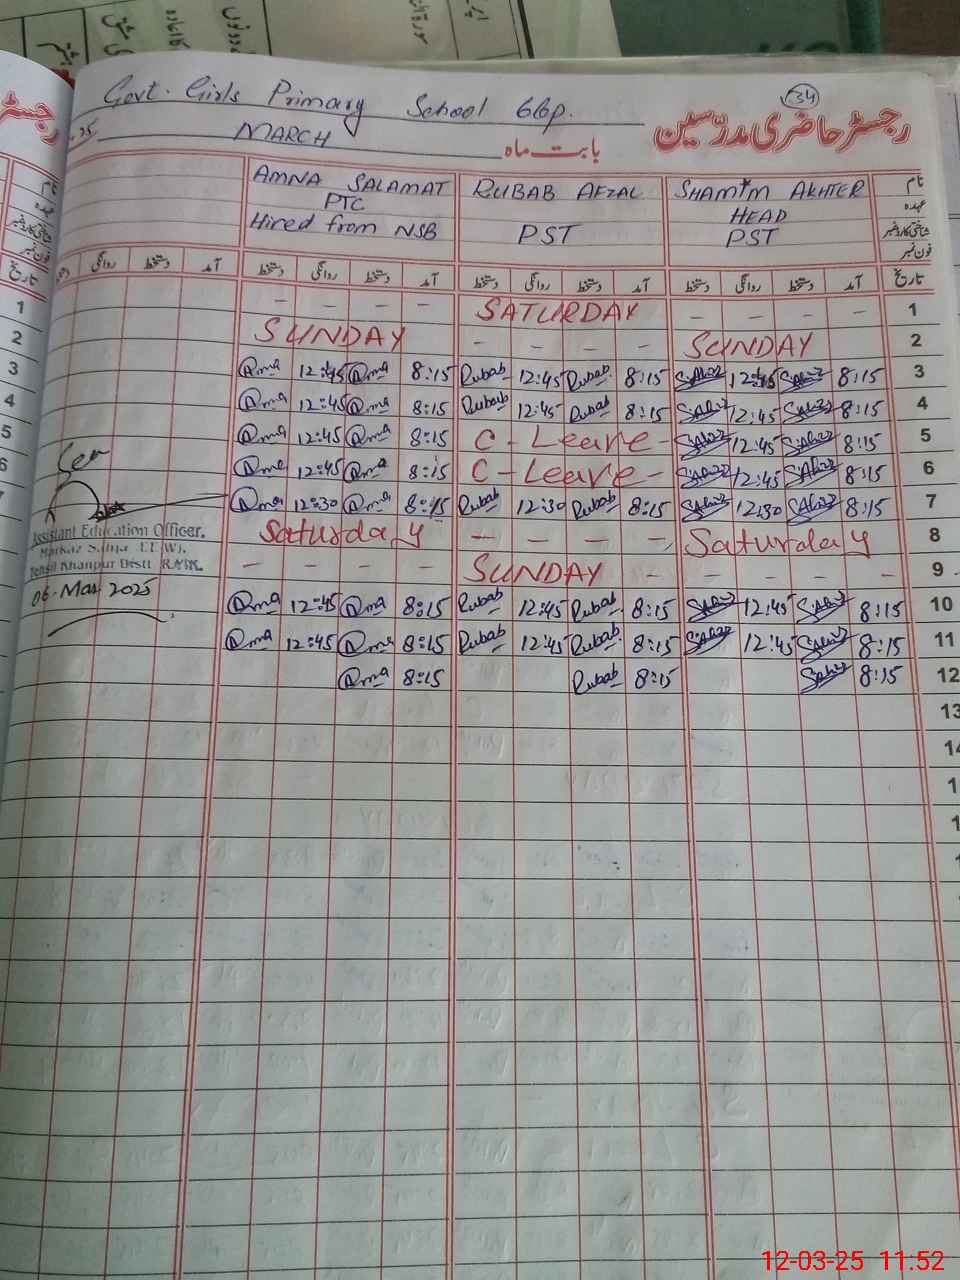 Govt. Girls Primary School 66p.
34
رجسٹر حاضری مدرسین
بابت ماہ MARCH
نام SHAMIM AKHTER RUBAB AFZAL AMNA SALAMAT
عہدہ HEAD PTC
شناختی کارڈ نمبر PST PST Hired from NSB
فون نمبر
تاریخ آمد دستخط روانگی دستخط آمد دستخط روانگی دستخط آمد دستخط روانگی دستخط آمد دستخط روانگی
- - - - SATURDAY - - - - 1
SUNDAY - - - - SUNDAY 2
Ama 12:45 Ama 8:15 Rubab 12:45 Rubab 8:15 12:45 8:15 3
Ama 12:45 Ama 8:15 Rubab 12:45 Rubab 8:15 12:45 8:15 4
Ama 12:45 Ama 8:15 C - Leave - 12:45 8:15 5
Ama 12:45 Ama 8:15 C - Leave - 12:45 8:15 6
Ama 12:30 Ama 8:15 Rubab 12:30 Rubab 8:15 12:30 8:15 7
Saturday - - - - Saturday 8
- - - - SUNDAY - - - - - 9
Ama 12:45 Ama 8:15 Rubab 12:45 Rubab 8:15 12:45 8:15 10
Ama 12:45 Ama 8:15 Rubab 12:45 Rubab 8:15 12:45 8:15 11
Ama 8:15 Rubab 8:15 8:15 12
13
14
Seen
Assistant Education Officer.
Markaz Sahja (E.W).
Tehsil Khanpur Distt R.Y.K.
06-Mar 2025
12-03-25 11:52